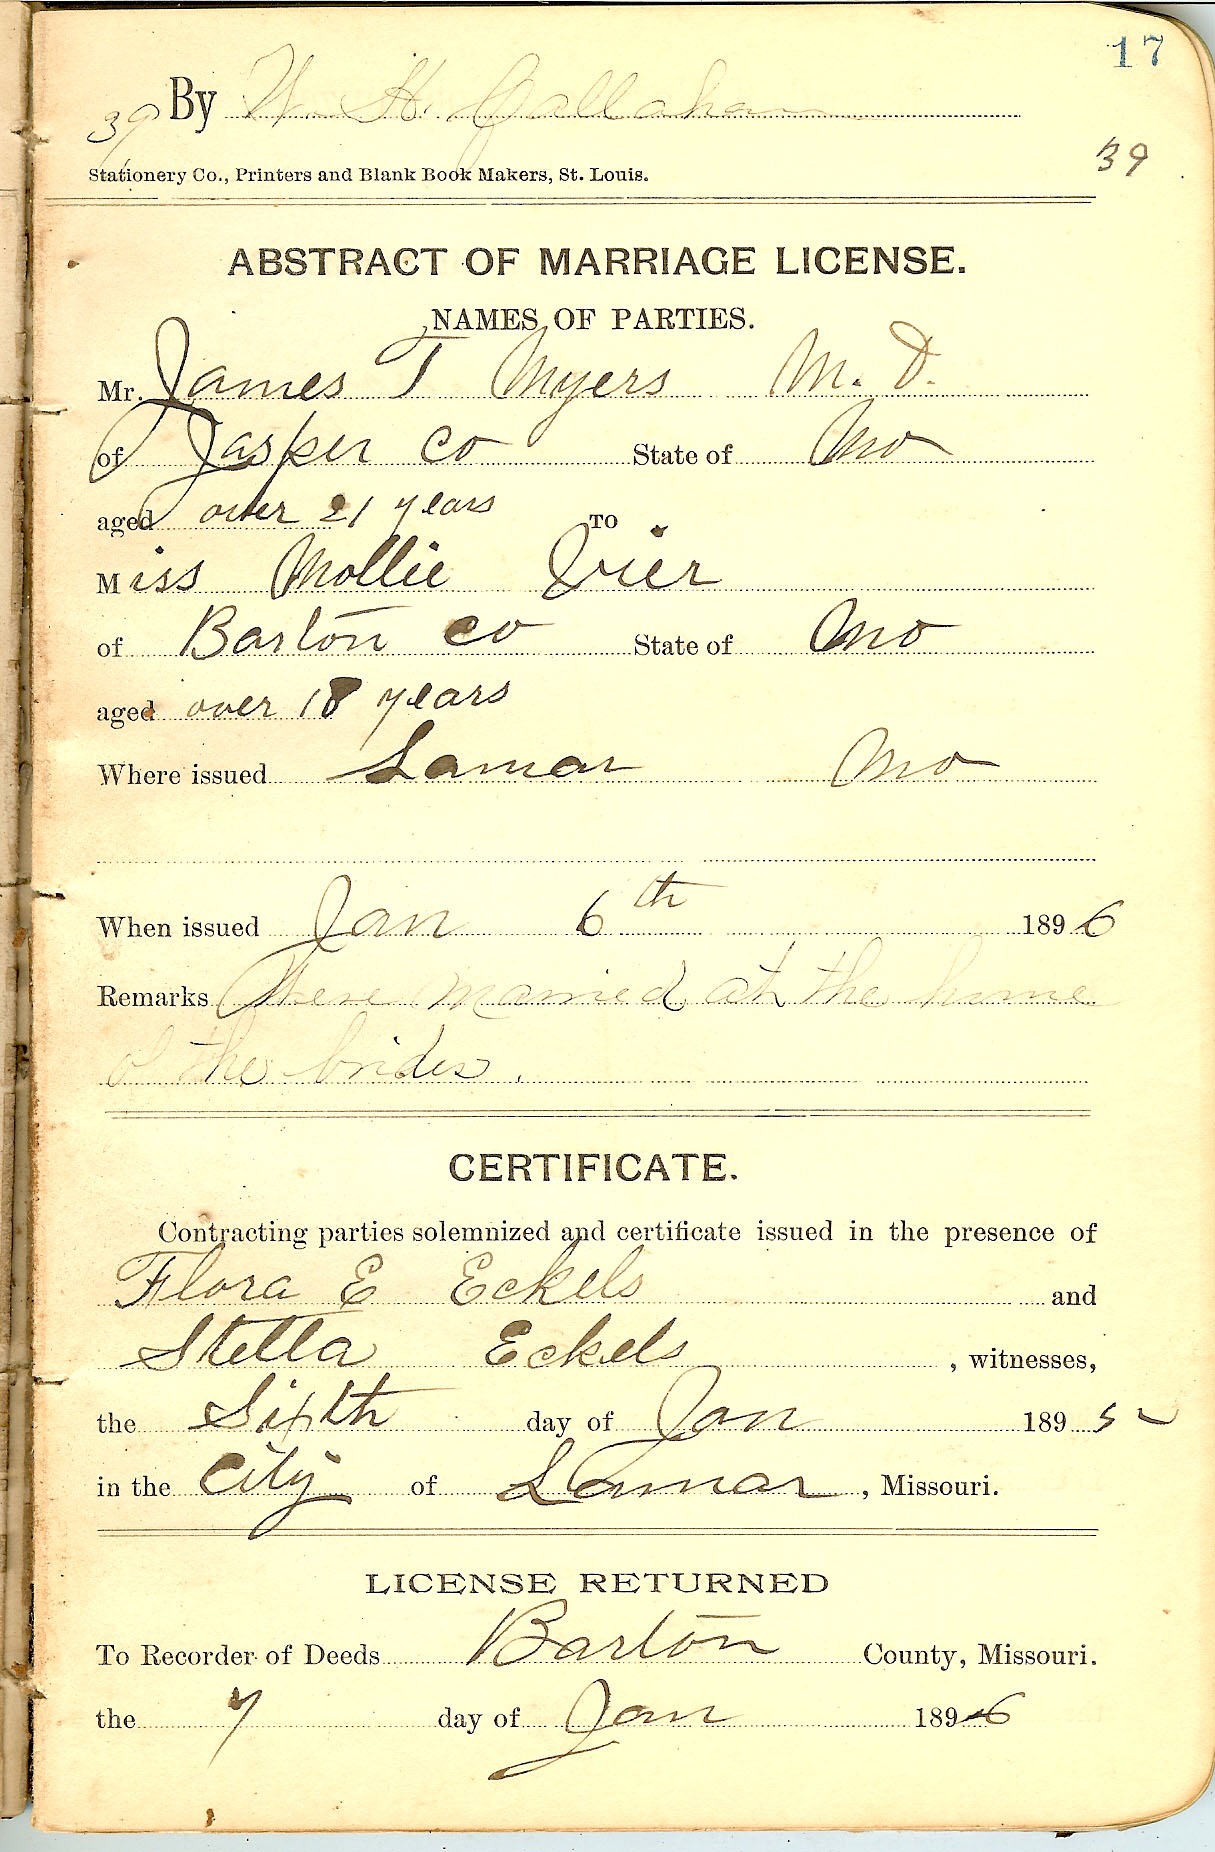 17
39 By W. H. Callahan
39
Stationery Co., Printers and Blank Book Makers, St. Louis.
ABSTRACT OF MARRIAGE LICENSE.
NAMES OF PARTIES.
Mr. James T Myers M. D.
of Jasper Co State of Mo
aged over 21 years TO
Miss Mollie
of Barton Co State of Mo
aged over 18 years
Where issued Lamar Mo
When issued Jan 6th 1896
Remarks Were married at the home
of the brides.
CERTIFICATE.
Contracting parties solemnized and certificate issued in the presence of
Flora E Eckels and
Stella Eckels, witnesses,
the Sixth day of Jan 189
in the City of Lamar, Missouri.
LICENSE RETURNED
To Recorder of Deeds Barton County, Missouri.
the 7 day of Jan 1896